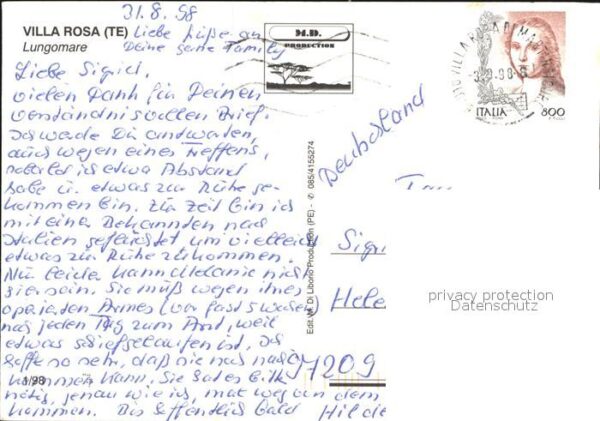 31.8.98
VILLA ROSA (TE)
Lungomare
Liebe Grüße an
Deine ganze Family
M.D.
PRODUCTION
ITALIA
800
Liebe Sigrid,
vielen Dank für Deinen
verständnisvollen Brief.
Ich werde Dir antworten,
auch wegen eines Treffens,
sobald ich etwas Abstand
habe u. etwas zur Ruhe ge-
kommen bin. Zur Zeit bin ich
mit einer Bekannten nach
Italien geflüchtet um vielleicht
etwas zur Ruhe zu kommen.
Nur leider kann Melanie nicht
hier sein. Sie muß wegen ihres
operierten Armes (vor fast 5 Wochen)
noch jeden Tag zum Arzt, weil
etwas schiefgelaufen ist. Ich
hoffe so sehr, daß sie noch nach-
kommen kann. Sie hat es bitter
nötig, genau wie ich, mal weg von dem
kommen. Bis hoffentlich bald
Deutschland
Sigri
Hele
97209
Hilde
Edit. M. Di Liborio Production (PE) - ✆ 085/4155274
1/98
privacy protection
Datenschutz